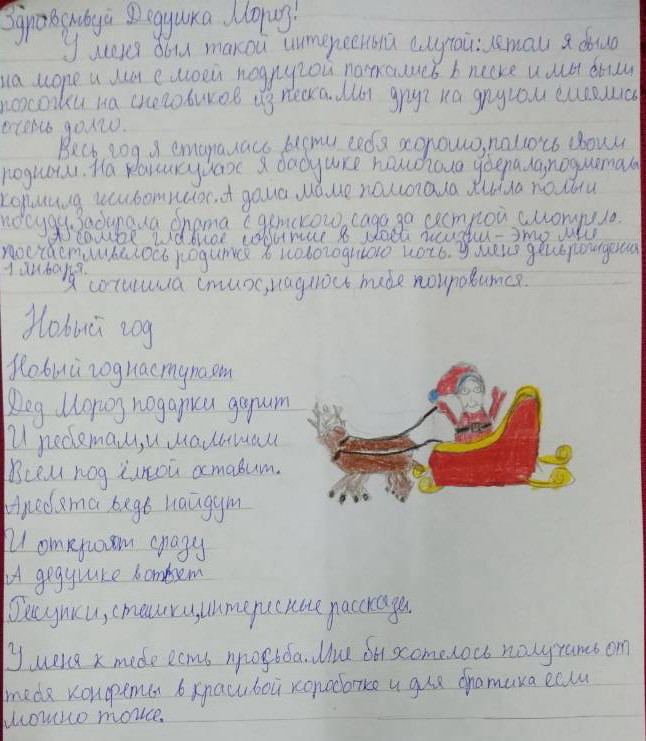 Здравствуй Дедушка Мороз!
У меня был такой интересный случай: летом я была
на море и мы с моей подругой пачкались в песке и мы были
похожи на снеговиков из песка. Мы друг на другом смеялись
очень долго.
Весь год я старалась вести себя хорошо, помочь своим
родным. На каникулах я бабушке помогала уберала, подметала
кормила животных. А дома маме помогала мыла полы и
посуду, забирала брата с детского сада, за сестрой смотрела.
А самое главное событие в моей жизни - это мне
посчастливелось родится в новогоднюю ночь. У меня день рождения
1 января.
Я сочинила стих, надеюсь тебе понравится.
Новый год
Новый год наступает
Дед Мороз подарки дарит
И ребятам, и малышам
Всем под ёлкой оставит.
А ребята ведь найдут
И откроят сразу
А дедушке в ответ
Рисунки, стишки, интересные рассказы.
У меня к тебе есть просьба. Мне бы хотелось получить от
тебя конфеты в красивой коробочке и для братика если
можно тоже.